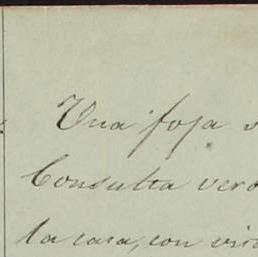 Una foja
Consulta verd
la casa, con